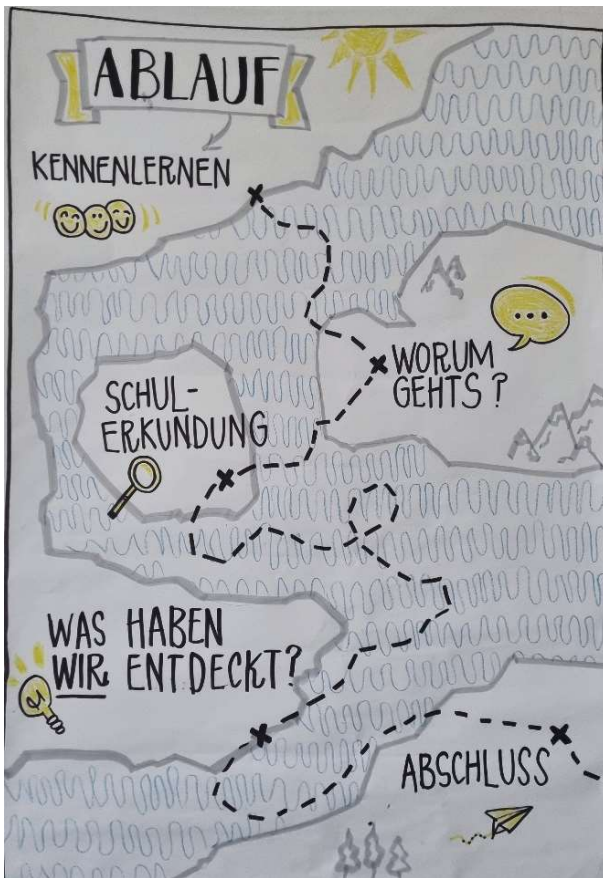 ABLAUF
KENNENLERNEN
WORUM
GEHTS?
SCHUL-
ERKUNDUNG
WAS HABEN
WIR ENTDECKT?
ABSCHLUSS